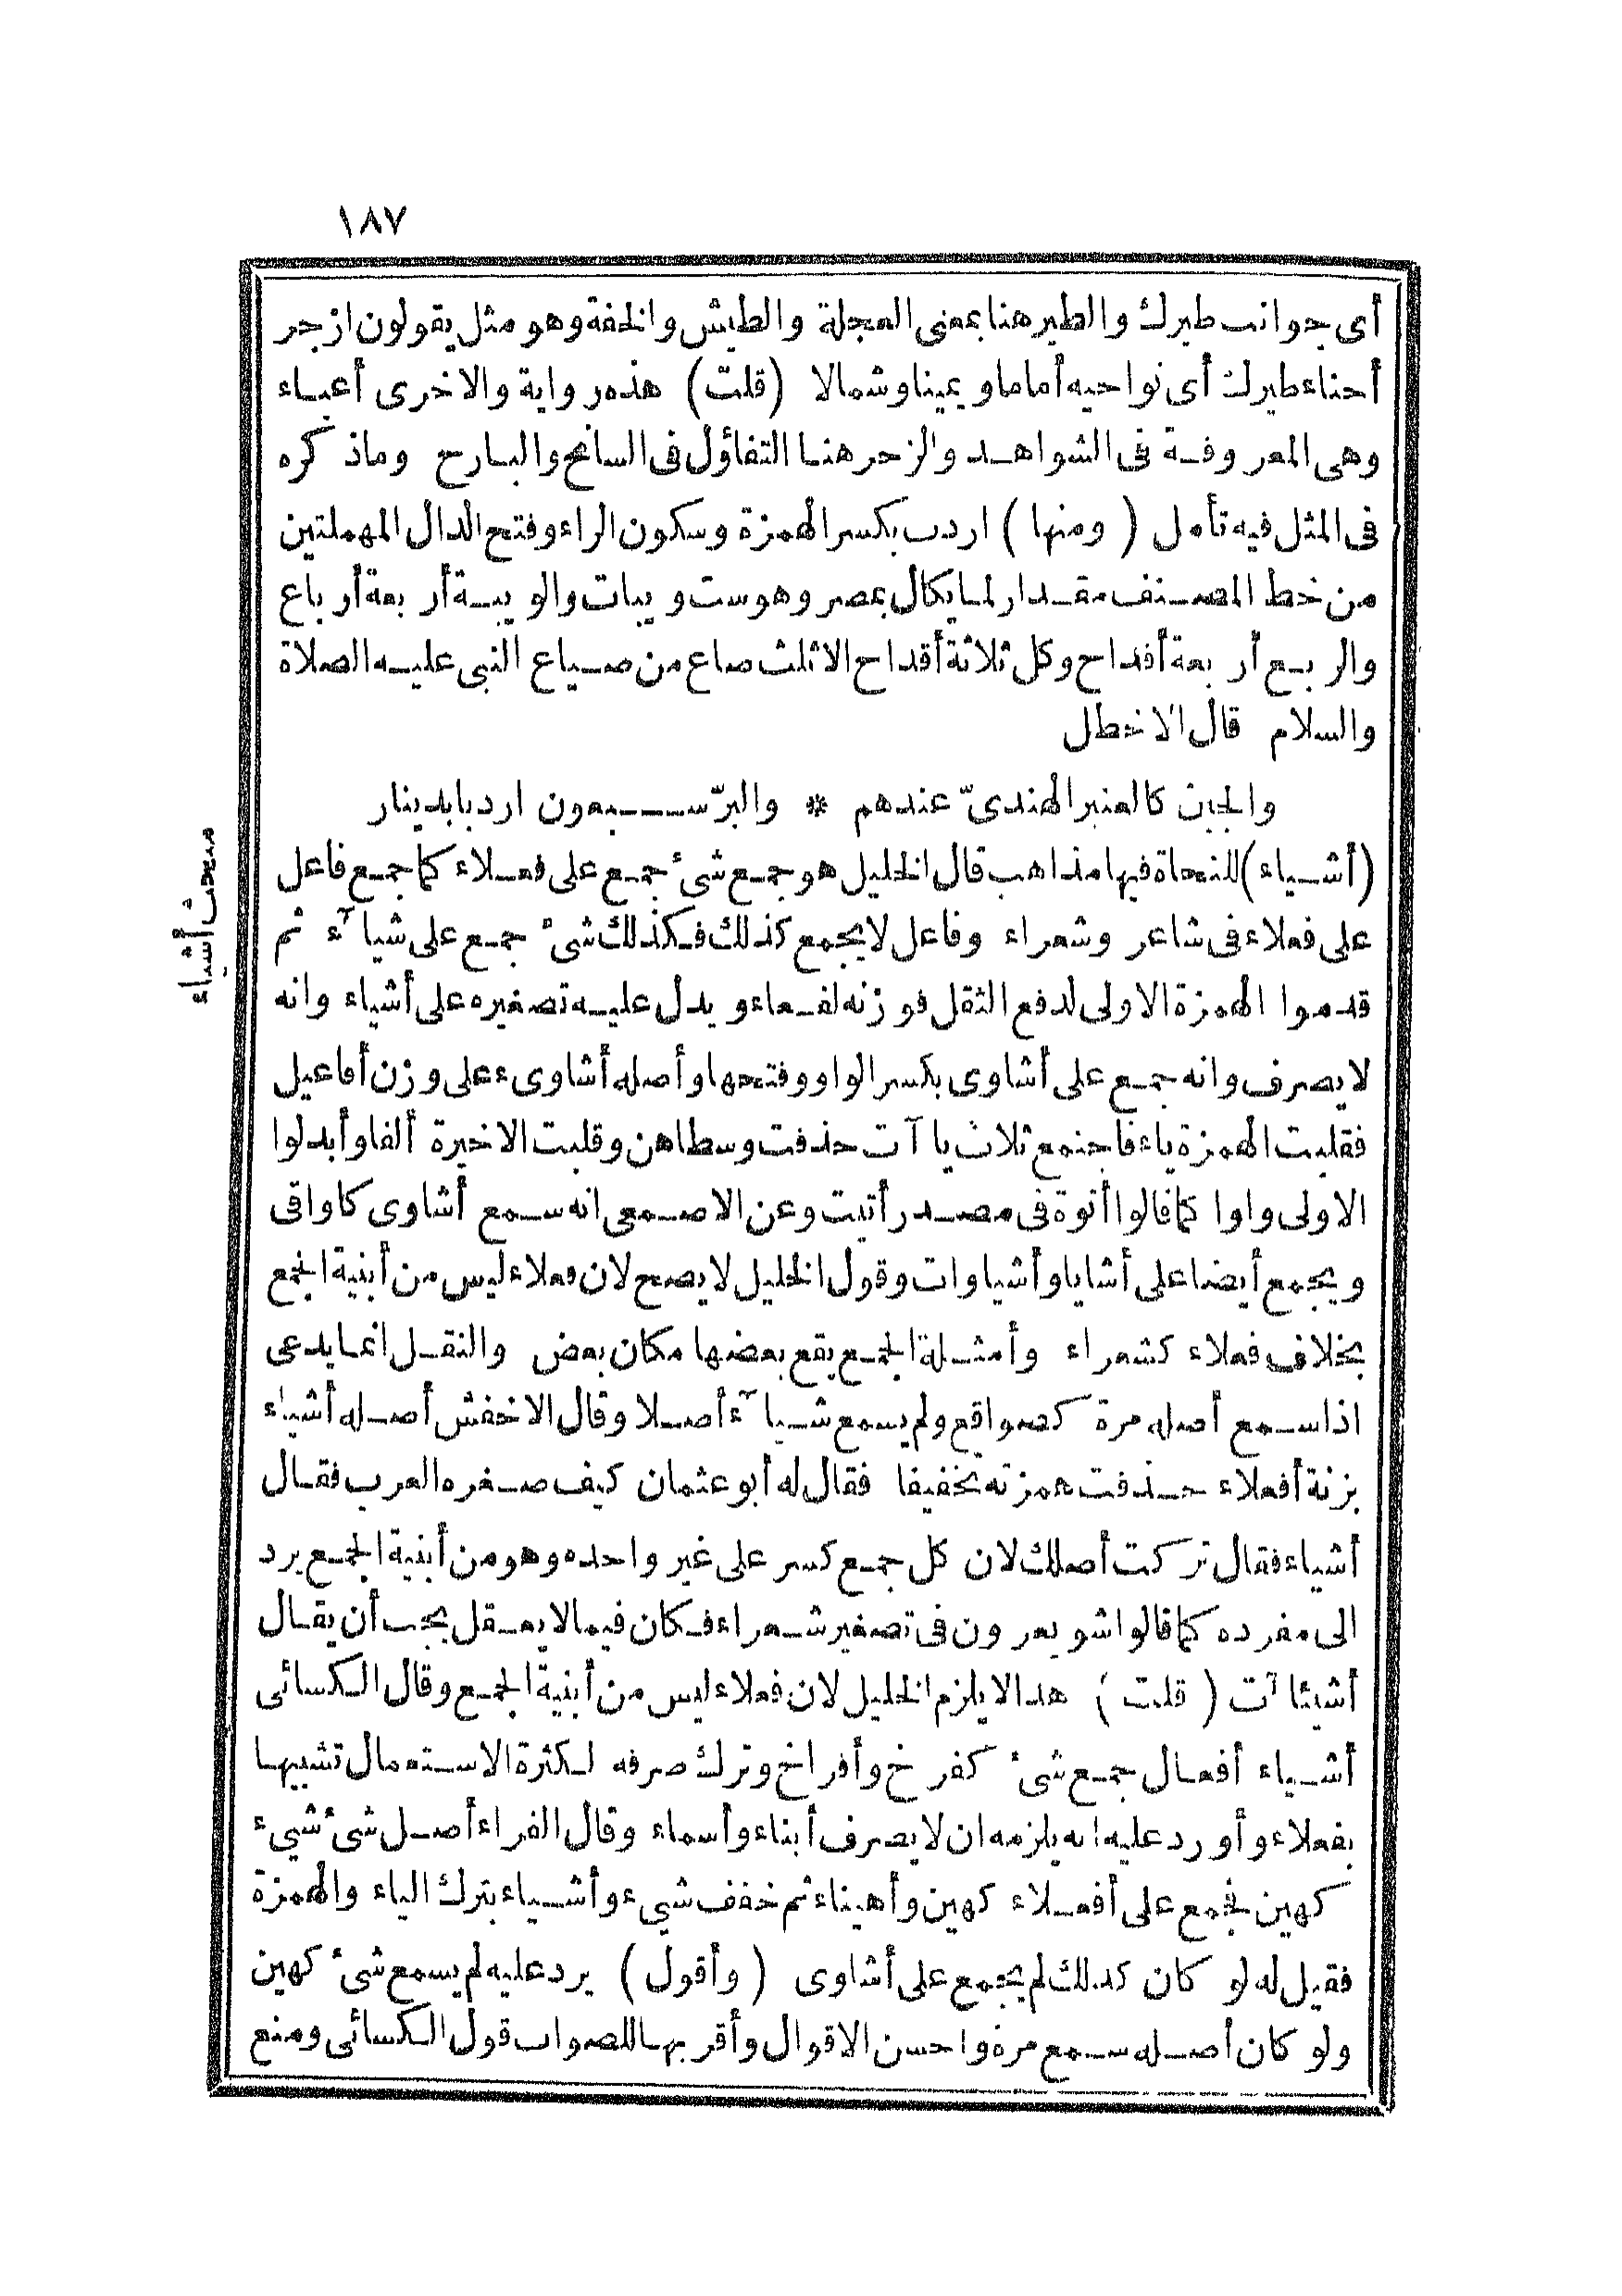 ١٨٧
أى جوانب طيرك والطير هنا بمعنى العجلة والطيش والخفة وهو مثل يقولون ازجر
أحناء طيرك أى نواحيه أماما ويمينا وشمالا (قلت) هذه رواية والاخرى أعباء
وهى المعروفة فى الشواهد والزجر هنا التفاؤل فى السانح والبارح وماذكره
فى المثل فيه تأمل (ومنها) اردب بكسر الهمزة وسكون الراء وفتح الدال المهملتين
من خط المصنف مقدار لما يكال بمصر وهو ست ويبات والويبة أربعة أرباع
والربع أربعة أقداح وكل ثلاثة أقداح الاثلث صاع من صياع النبى عليه الصلاة
والسلام قال الاخطل
والجبن كالعنبر الهندىّ عندهم * والبرّ سبعون اردبا بدينار
(أشياء) للنحاة فيها مذاهب قال الخليل هو جمع شئ جمع على فعلاء كما جمع فاعل
على فعلاء فى شاعر وشعراء وفاعل لا يجمع كذلك فكذلك شئ جمع على شياآء ثم
قدموا الهمزة الاولى لدفع الثقل فوزنه لفعاء ويدل عليه تصغيره على أشياء وانه
لا يصرف وانه جمع على أشاوى بكسر الواو وفتحها وأصله أشاوىء على وزن أفاعيل
فقلبت الهمزة ياء فاجتمع ثلاث ياآت حذفت وسطاهن وقلبت الاخيرة ألفا وأبدلوا
الاولى واوا كما قالوا أتوة فى مصدر أتيت وعن الاصمعى انه سمع أشاوى كاواقى
ويجمع أيضا على أشايا وأشياوات وقول الخليل لا يصح لان فعلاء ليس من أبنية الجمع
بخلاف فعلاء كشعراء وأمثلة الجمع يقع بعضها مكان بعض والنقل انما يدعى
اذا سمع أصله مرة كصواقع ولم يسمع شياآء أصلا وقال الاخفش أصله أشيئاء
بزنة أفعلاء حذفت همزته تخفيفا فقال له أبو عثمان كيف صغره العرب فقال
أشياء فقال تركت أصلك لان كل جمع كسر على غير واحده وهو من أبنية الجمع يرد
الى مفرده كما قالوا شويعرون فى تصغير شعراء فكان فيما لا يعقل يجب أن يقال
أشيئاآت (قلت) هذا لا يلزم الخليل لان فعلاء ليس من أبنية الجمع وقال الكسائى
أشياء أفعال جمع شئ كفرخ وأفراخ وترك صرفه لكثرة الاستعمال تشبيها
بفعلاء وأورد عليه انه يلزمه ان لا يصرف أبناء وأسماء وقال الفراء أصل شئ شيىء
كهين فجمع على أفعلاء كهين وأهيناء ثم خفف شيىء وأشياء بترك الياء والهمزة
فقيل له لو كان كذلك لم يجمع على أشاوى (وأقول) يرد عليه لم يسمع شئ كهين
ولو كان أصله سمع مرة واحسن الاقوال وأقربها للصواب قول الكسائى ومنع
مبحث أشياء